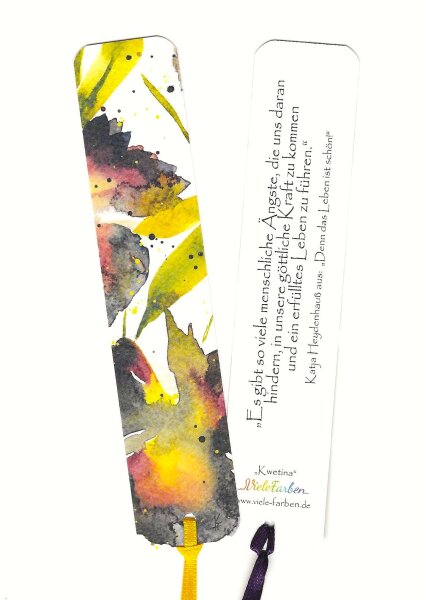 „Es gibt so viele menschliche Ängste, die uns daran
hindern, in unsere göttliche Kraft zu kommen
und ein erfülltes Leben zu führen.“
Katja Heydenhauß aus: „Denn das Leben ist schön!“
„Kwetina“
VieleFarben
www.viele-farben.de